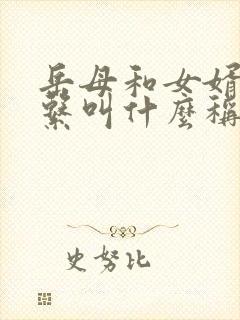 岳母和女婿
繫叫什麼稱
史努比